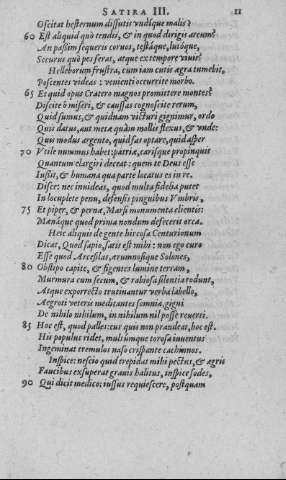 SATIRA III. 11
Oscitat hesternum dissutis undíque malis?
60 Est aliquid quò tendis, & in quod dirigis arcum?
An passim sequeris corvos, testáque, lutóque,
Securus quò pes ferat, atque ex tempore vivis?
Helleborum frustra, cum iam cutis ægra tumebit,
Poscentes videas: venienti occurrite morbo.
65 Et quid opus Cratero magnos promittere montes?
Discite ô miseri, & caussas cognoscite rerum,
Quid sumus, & quidnam victuri gignimur, ordo
Quis datus, aut metæ quàm mollis flexus, & unde:
Quis modus argento, quid fas optare, quid asper
70 Vtile nummus habet: patriæ, carísque propinquis
Quantum elargiri deceat: quem te Deus esse
Iussit, & humana qua parte locatus es in re.
Disce: nec invideas, quod multa fidelia putet
In locuplete penu, defensis pinguibus Vmbris,
75 Et piper, & pernæ, Marsi monumenta clientis:
Mænáque quod prima nondum defecerit orca.
Heic aliquis de gente hircosa Centurionum
Dicat, Quod sapio, satis est mihi: non ego curo
Esse quod Arcesilas, ærumnosique Solones,
80 Obstipo capite, & figentes lumine terram,
Murmura cum secum, & rabiosa silentia rodunt,
Atque exporrecto trutinantur verba labello,
Aegroti veteris meditantes somnia, gigni
De nihilo nihilum, in nihilum nil posse reverti.
85 Hoc est, quod palles: cur quis non prandeat, hoc est.
His populus ridet, multúmque torosa iuventus
Ingeminat tremulos naso crispante cachinnos.
Inspice: nescio quid trepidat mihi pectus, & ægris
Faucibus exsuperat gravis halitus, inspice sodes,
90 Qui dicit medico: iussus requiescere, postquam